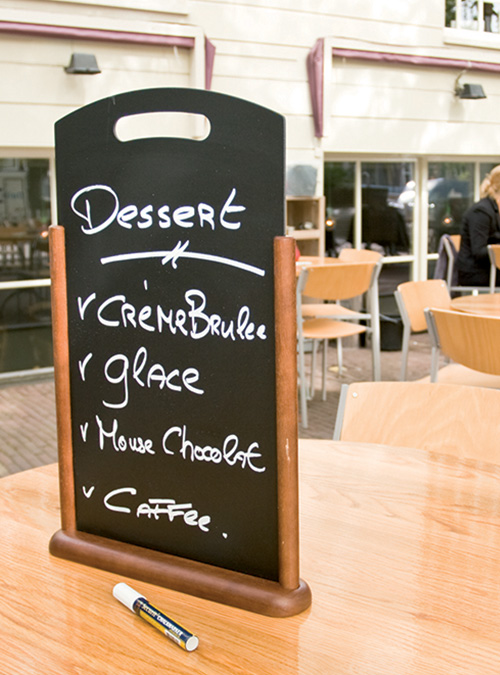 Dessert
✓ CRèME BRulee
✓ glace
✓ Mouse Chocolat
✓ Caffee.